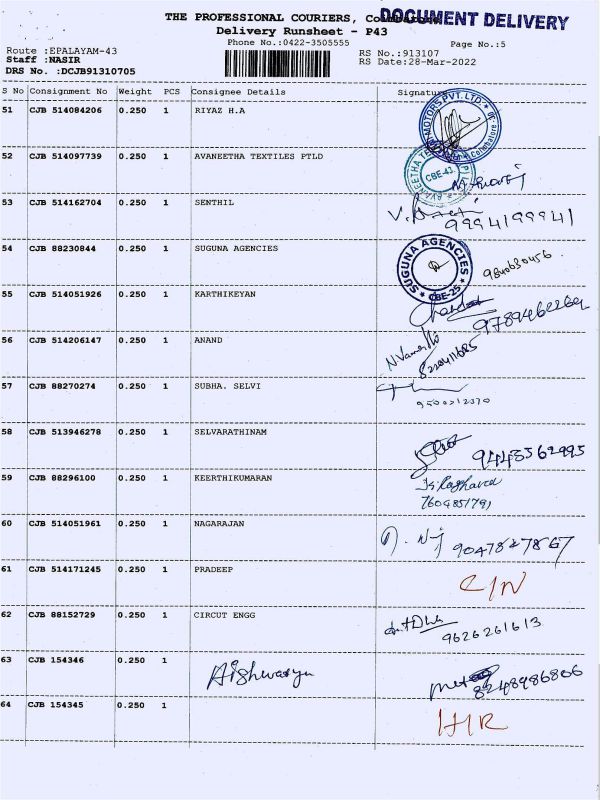 THE PROFESSIONAL COURIERS, Coimbatore
DOCUMENT DELIVERY
Delivery Runsheet - P43
Phone No.:0422-3505555
Page No.:5
Route :EPALAYAM-43
RS No.:913107
Staff :NASIR
RS Date:28-Mar-2022
DRS No. :DCJB91310705
S No Consignment No Weight PCS Consignee Details Signature
51 CJB 514084206 0.250 1 RIYAZ H.A
MOTORS PVT. LTD. Coimbatore
52 CJB 514097739 0.250 1 AVANEETHA TEXTILES PTLD
CBE-43
53 CJB 514162704 0.250 1 SENTHIL
9994199941
54 CJB 88230844 0.250 1 SUGUNA AGENCIES
SUGUNA AGENCIES * CBE-25 *
9840630456
55 CJB 514051926 0.250 1 KARTHIKEYAN
56 CJB 514206147 0.250 1 ANAND
57 CJB 88270274 0.250 1 SUBHA. SELVI
58 CJB 513946278 0.250 1 SELVARATHINAM
9443562995
59 CJB 88296100 0.250 1 KEERTHIKUMARAN
7604851791
60 CJB 514051961 0.250 1 NAGARAJAN
9047827867
61 CJB 514171245 0.250 1 PRADEEP
C/N
62 CJB 88152729 0.250 1 CIRCUT ENGG
9626261613
63 CJB 154346 0.250 1 Aishwarya
8248986806
64 CJB 154345 0.250 1